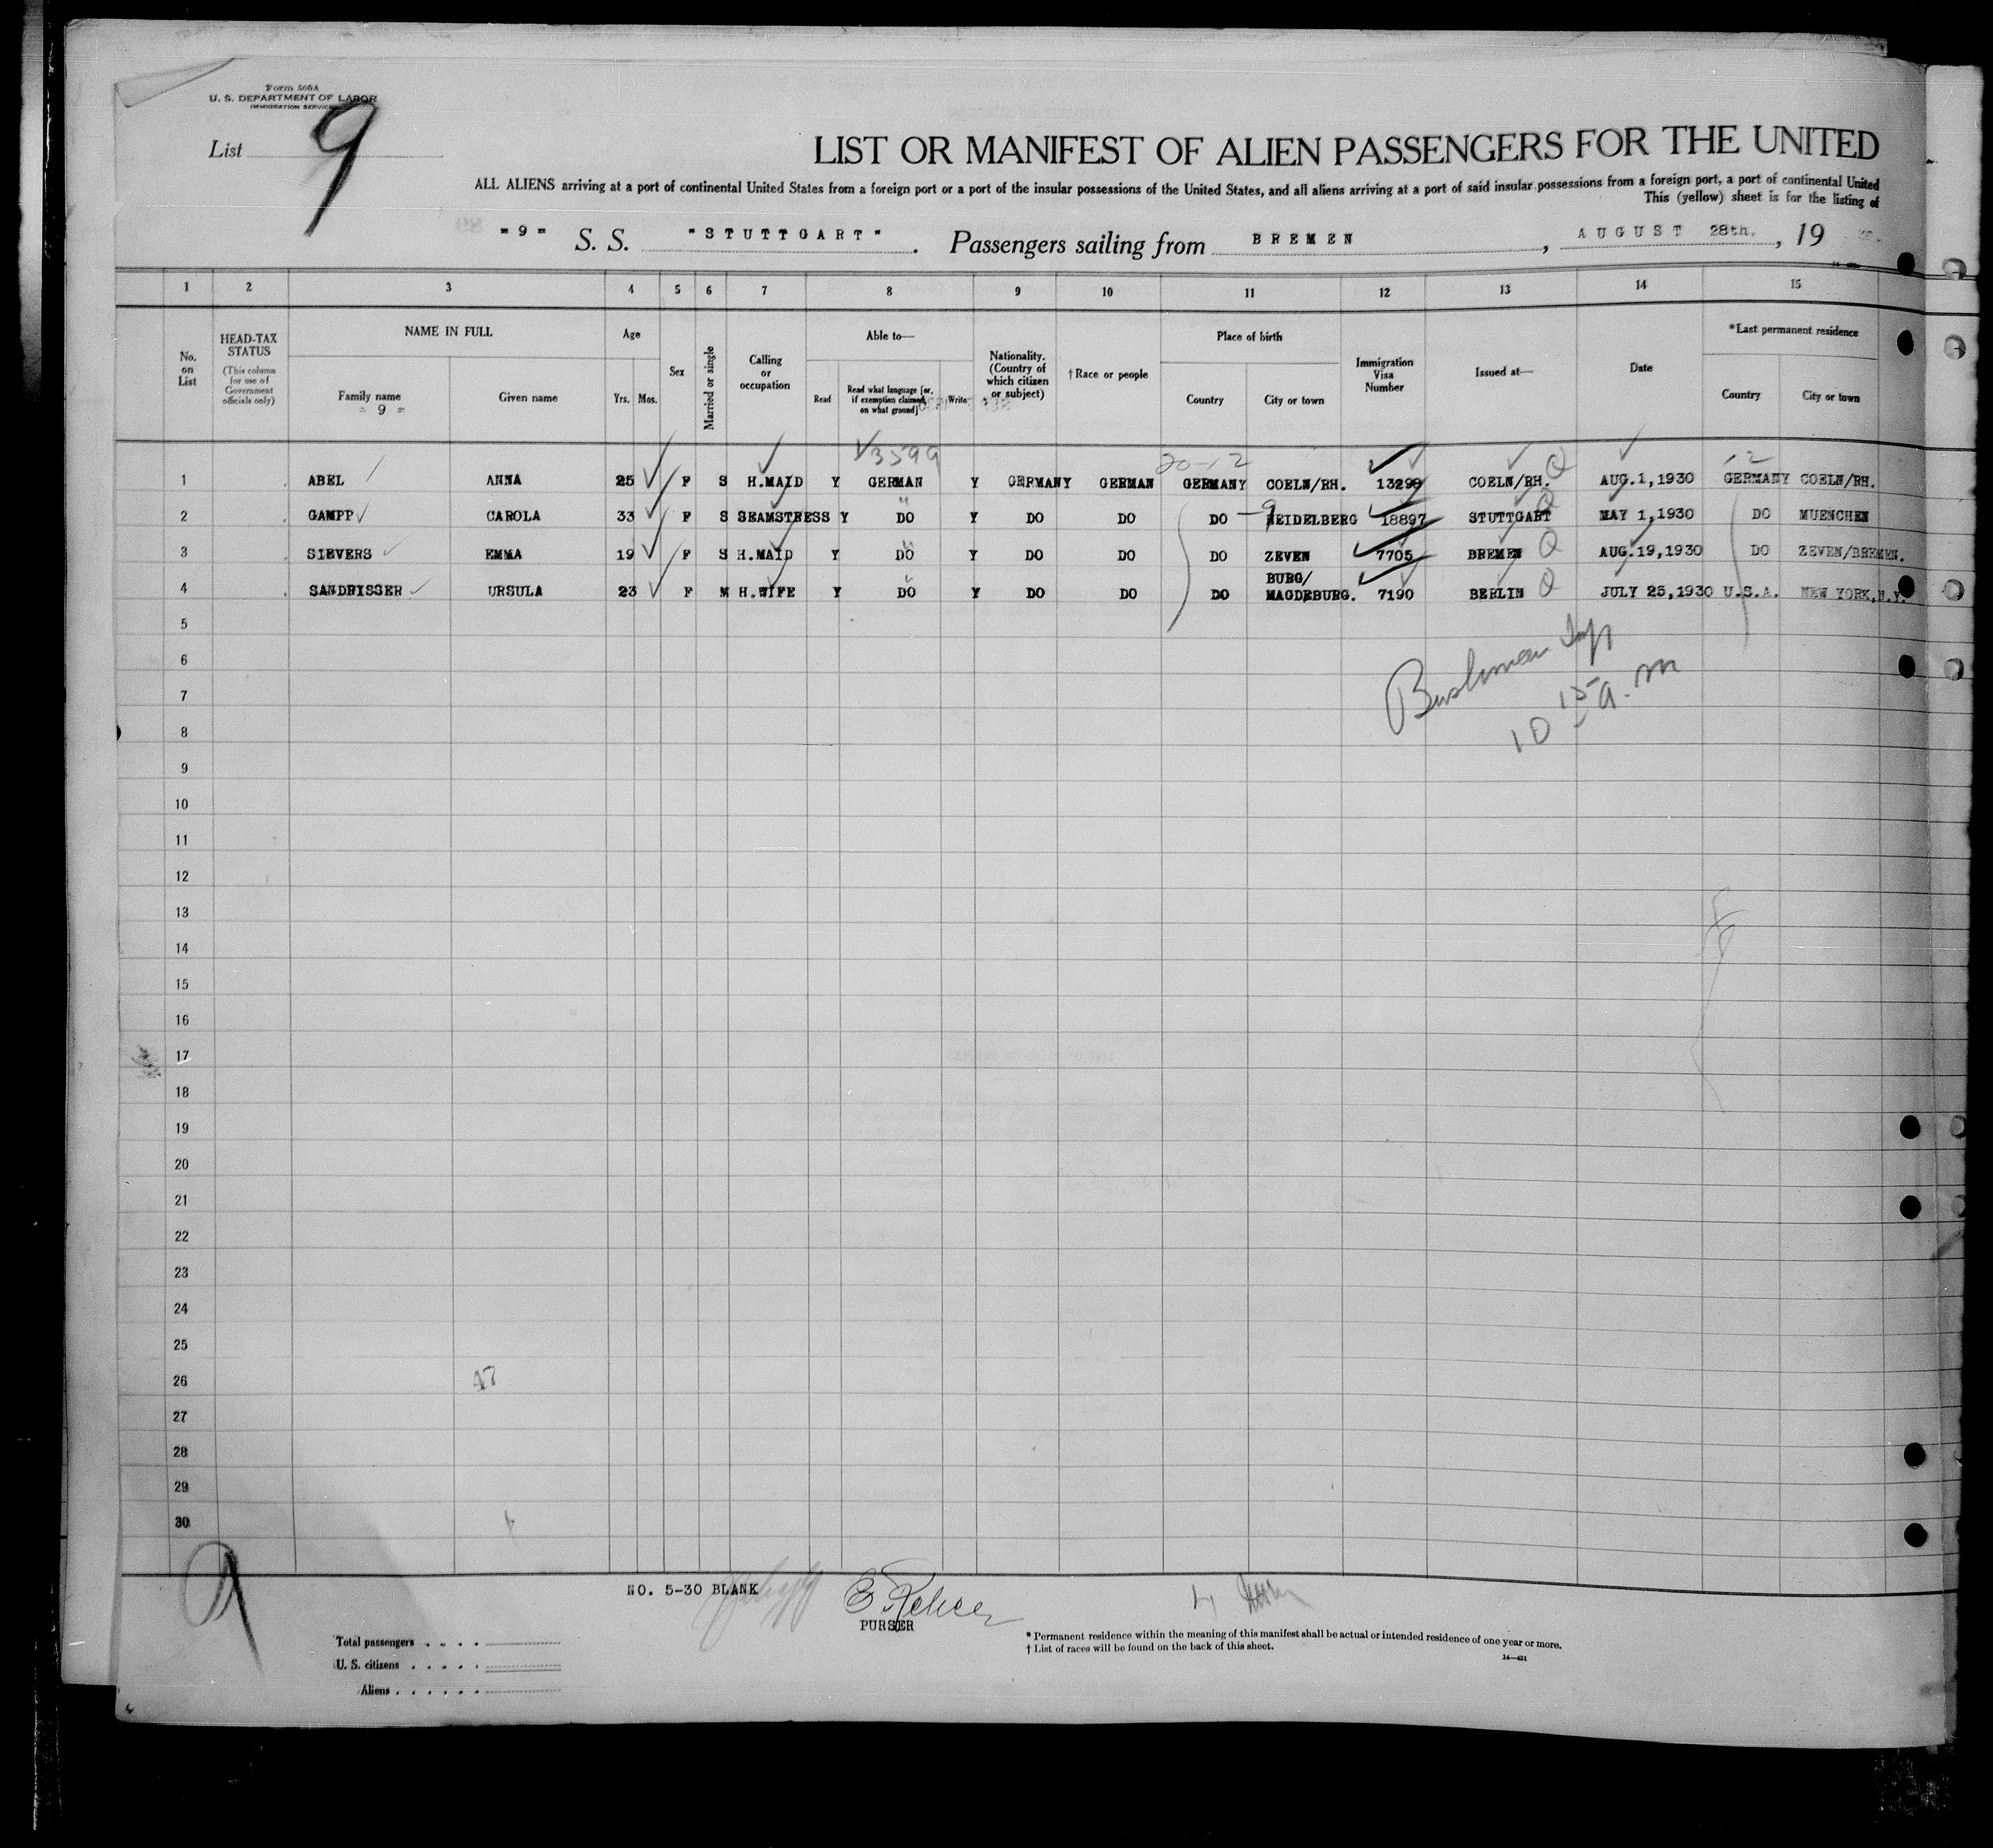 Form 500A
U. S. DEPARTMENT OF LABOR
IMMIGRATION SERVICE
List 9
LIST OR MANIFEST OF ALIEN PASSENGERS FOR THE UNITED
ALL ALIENS arriving at a port of continental United States from a foreign port or a port of the insular possessions of the United States, and all aliens arriving at a port of said insular possessions from a foreign port, a port of continental United
This (yellow) sheet is for the listing of
"9" S. S. "STUTTGART". Passengers sailing from BREMEN, AUGUST 28th., 19
1 2 3 4 5 6 7 8 9 10 11 12 13 14 15
No. on List
HEAD-TAX STATUS (This column for use of Government officials only)
NAME IN FULL
Family name
= 9 =
Given name
Age
Yrs. Mos.
Sex
Married or single
Calling or occupation
Able to—
Read
Read what language [or, if exemption claimed, on what ground]
Write
Nationality. (Country of which citizen or subject)
†Race or people
Place of birth
Country
City or town
Immigration Visa Number
Issued at—
Date
*Last permanent residence
Country
City or town
3599 20-12 12
1 ABEL ANNA 25 F S H.MAID Y GERMAN Y GERMANY GERMAN GERMANY COELN/RH. 13299 COELN/RH. AUG.1,1930 GERMANY COELN/RH.
2 GAMPP CAROLA 33 F S SEAMSTRESS Y DO Y DO DO DO -9 HEIDELBERG 18897 STUTTGART MAY 1,1930 DO MUENCHEN
3 SIEVERS EMMA 19 F S H.MAID Y DO Y DO DO DO ZEVEN 7705 BREMEN AUG.19,1930 DO ZEVEN/BREMEN.
4 SANDRISSER URSULA 23 F M H.WIFE Y DO Y DO DO DO BURG/MAGDEBURG. 7190 BERLIN JULY 25,1930 U.S.A. NEW YORK,N.Y.
5
6
Bushman Insp
7
10 15 a.m
8
9
10
11
12
13
14
15
16
17
18
19
20
21
22
23
24
25
26 47
27
28
29
30
9
NO. 5-30 BLANK
4
PURSER
* Permanent residence within the meaning of this manifest shall be actual or intended residence of one year or more.
† List of races will be found on the back of this sheet.
Total passengers
U. S. citizens
Aliens